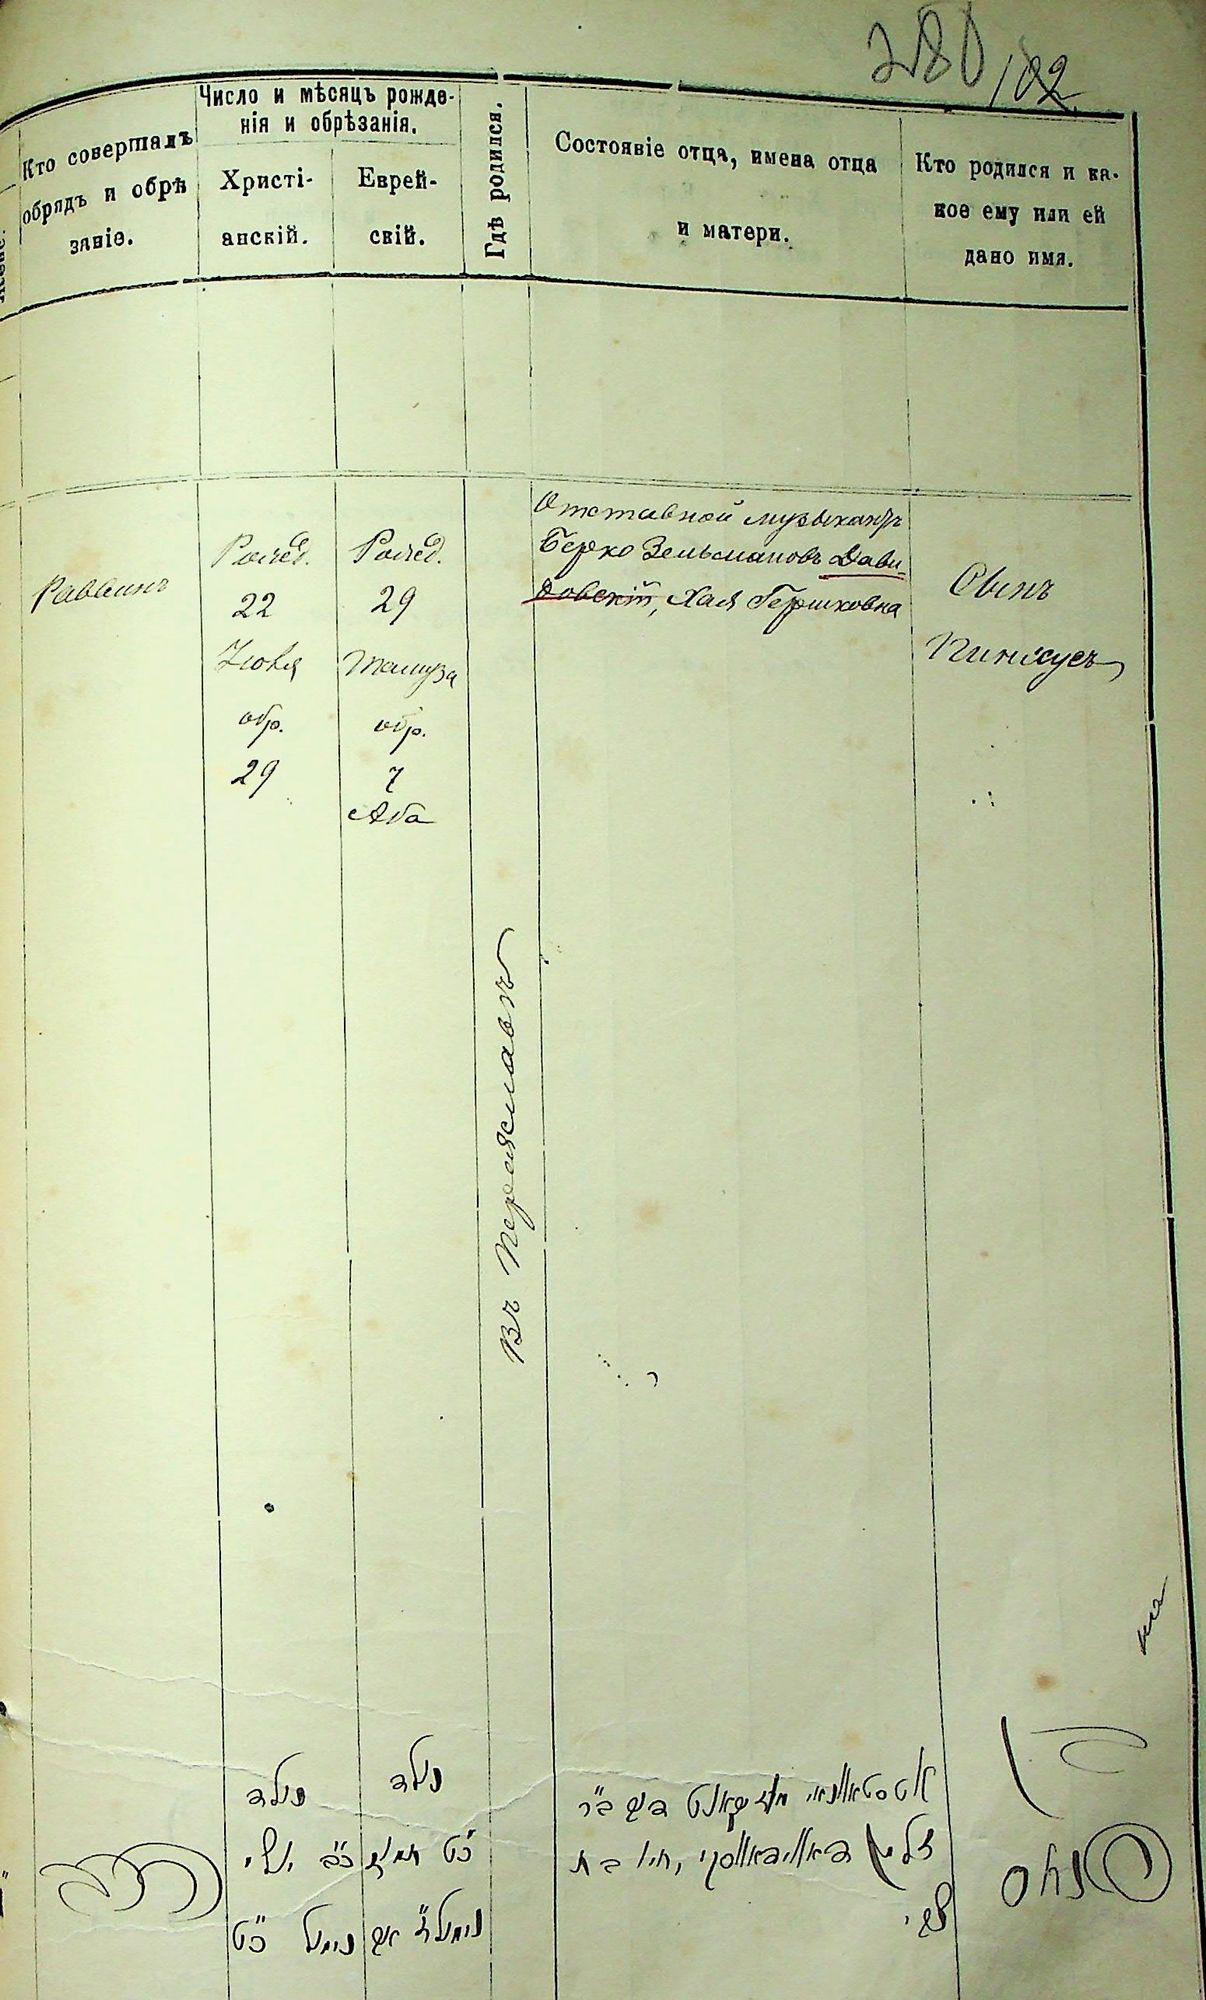 280
102
Кто совершалъ
обрядъ и обрѣ
заніе.
Число и мѣсяцъ рожде-
нія и обрѣзанія.
Христі-
анскій.
Еврей-
скій.
Гдѣ родился.
Состояніе отца, имена отца
и матери.
Кто родился и ка-
кое ему или ей
дано имя.
Раввинъ
Рожд.
22
Іюля
обр.
29
Рожд.
29
Тамуза
обр.
7
Аба
Въ Переяславѣ
Отставной музыкантъ
Берко Зельмановъ Дави-
довскій, Хая Гершковна
Сынъ
Пинхусъ
נולד
כ״ב יולי
נימול כ״ט
נולד
כ״ט תמוז
זלמן דאווידאווסקי, חי׳ בת
בן
פנחס